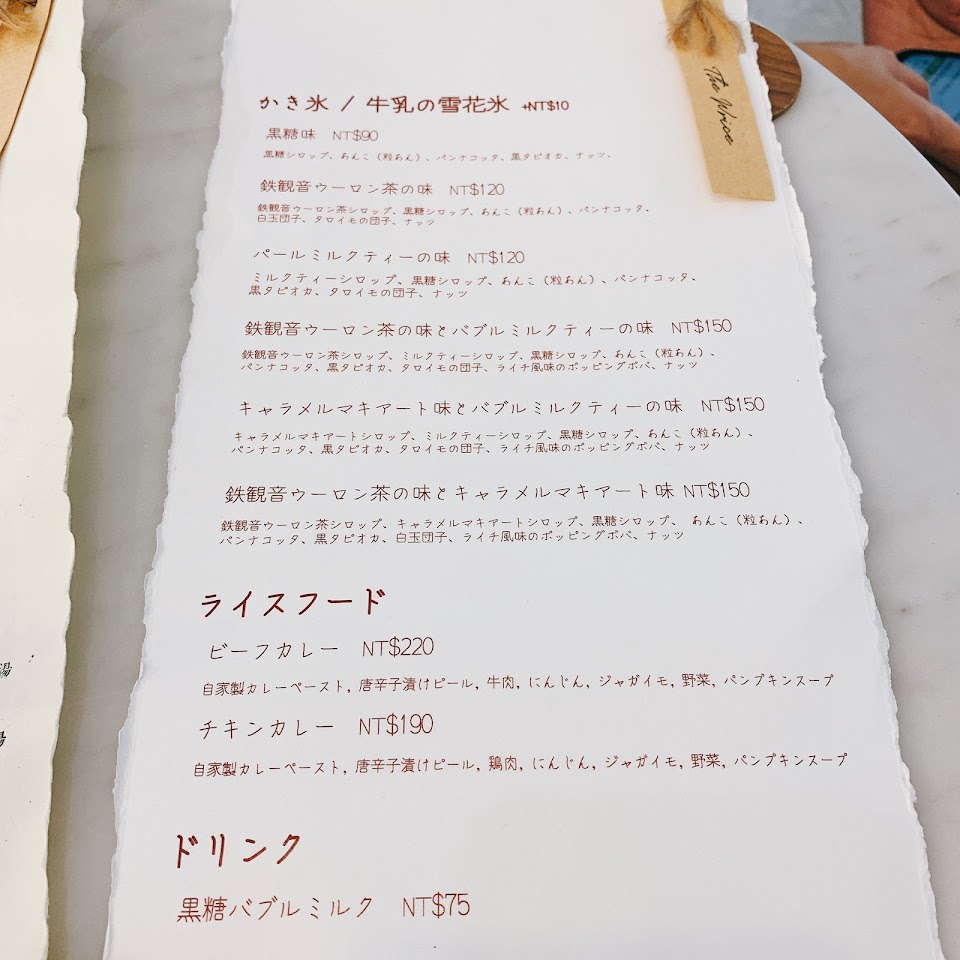 The Wrice
かき氷 / 牛乳の雪花氷 +NT$10
黒糖味 NT$90
黒糖シロップ、あんこ（粒あん）、パンナコッタ、黒タピオカ、ナッツ、
鉄観音ウーロン茶の味 NT$120
鉄観音ウーロン茶シロップ、黒糖シロップ、あんこ（粒あん）、パンナコッタ、
白玉団子、タロイモの団子、ナッツ
パールミルクティーの味 NT$120
ミルクティーシロップ、黒糖シロップ、あんこ（粒あん）、パンナコッタ、
黒タピオカ、タロイモの団子、ナッツ
鉄観音ウーロン茶の味とバブルミルクティーの味 NT$150
鉄観音ウーロン茶シロップ、ミルクティーシロップ、黒糖シロップ、あんこ（粒あん）、
パンナコッタ、黒タピオカ、タロイモの団子、ライチ風味のポッピングボバ、ナッツ
キャラメルマキアート味とバブルミルクティーの味 NT$150
キャラメルマキアートシロップ、ミルクティーシロップ、黒糖シロップ、あんこ（粒あん）、
パンナコッタ、黒タピオカ、タロイモの団子、ライチ風味のポッピングボバ、ナッツ
鉄観音ウーロン茶の味とキャラメルマキアート味 NT$150
鉄観音ウーロン茶シロップ、キャラメルマキアートシロップ、黒糖シロップ、 あんこ（粒あん）、
パンナコッタ、黒タピオカ、白玉団子、ライチ風味のポッピングボバ、ナッツ
ライスフード
ビーフカレー NT$220
自家製カレーペースト, 唐辛子漬けピール, 牛肉, にんじん, ジャガイモ, 野菜, パンプキンスープ
チキンカレー NT$190
自家製カレーペースト, 唐辛子漬けピール, 鶏肉, にんじん, ジャガイモ, 野菜, パンプキンスープ
ドリンク
黒糖バブルミルク NT$75
湯